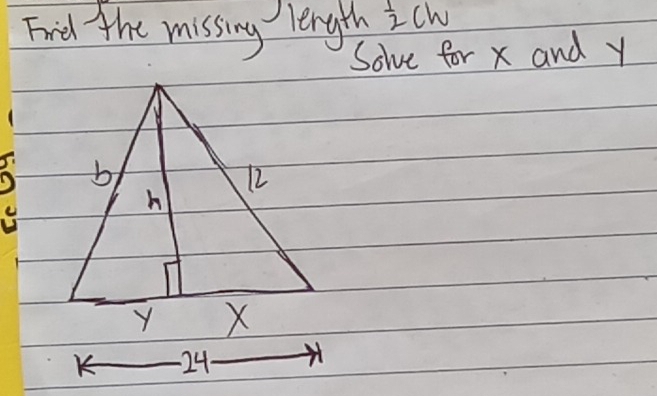 Find the missing length ½ CW
Solve for x and y
b
h
12
Y X
24